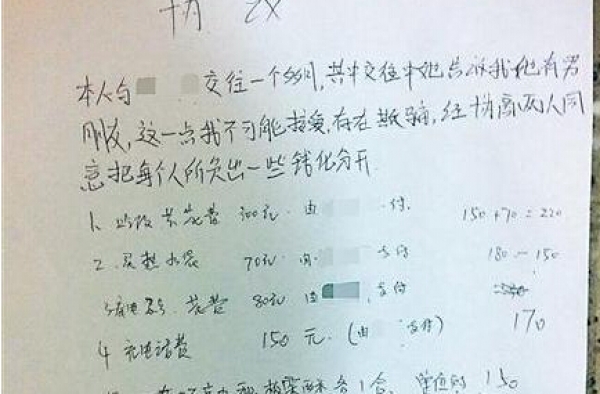 协 议
本人与 交往一个多月,其中交往中她告诉我她有男
朋友,这一点我不可能接爱,存在欺骗,经协商两人同
意把每个人所负出一些钱化分开
1、 共花费 300元. 由 付. 150+70=220
2、买热水袋 70元 由 支付 180-150
3、 花费 80元 由 支付
4 充电话费 150元.(由 支付) 170
各1盒, 150